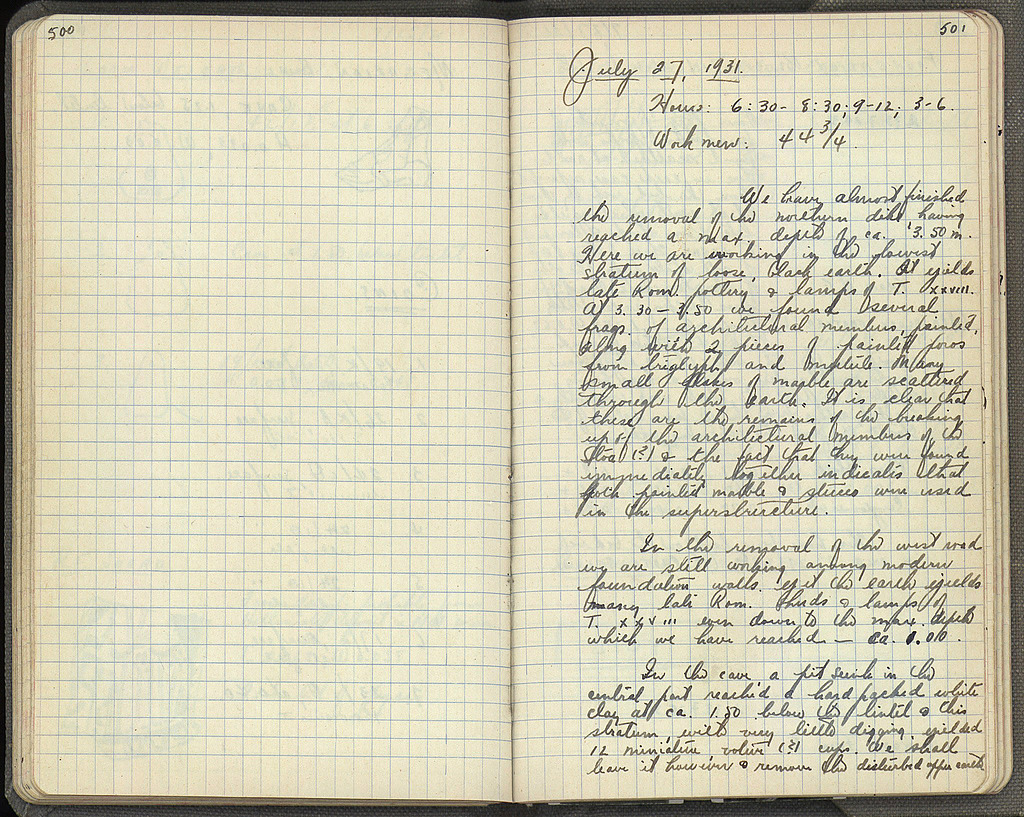 500
501
July 27, 1931.
Hours: 6:30 - 8:30; 9-12; 3-6.
Workmen: 44 3/4.
We have almost finished
the removal of the northern dike having
reached a max. depth of ca. 3.50 m.
Here we are working in the lowest
stratum of loose, black earth. It yields
late Rom. pottery & lamps of T. XXVIII.
At 3.30 - 3.50 we found several
frags. of architectural members, painted,
along with 2 pieces of painted poros
from triglyph and mutule. Many
small flakes of marble are scattered
through the earth. It is clear that
these are the remains of the breaking
up of the architectural members of the
Stoa (?) & the fact that they were found
immediately together indicates that
both painted marble & stucco were used
in the superstructure.
In the removal of the west road
we are still working among modern
foundation walls. yet the earth yields
many late Rom. sherds & lamps of
T. XXVIII even down to the max. depth
which we have reached - ca. 1.00.
In the cave a pit sunk in the
central part reached a hard packed white
clay at ca. 1.50 below the lintel & this
stratum, with very little digging, yielded
12 miniature votive (?) cups. We shall
leave it however & remove the disturbed upper earth